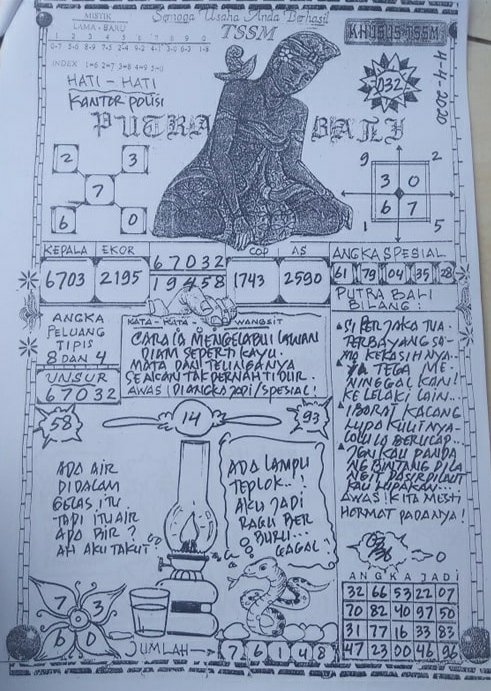 MISTIK
LAMA - BARU
1 2 3 4 5 6 7 8 9 0
Semoga Usaha Anda Berhasil
TSSM
KHUSUS TSSM
INDEX 1=6 2=7 3=8 4=9 5=0
HATI - HATI
KANTOR POLISI
032
4-4-2020
PUTRA BALI
2 3
7
6 0
9 2
3 0
6 7
1 5
KEPALA EKOR
6703 2195
67032
19458
COP AS
1743 2590
ANGKA SPESIAL
61 79 04 35 28
ANGKA
PELUANG
TIPIS
8 DAN 4
UNSUR
67032
KATA - KATA - WANGSIT
CARA IA MENGELABUI LAWAN
DIAM SEPERTI KAYU.
MATA DAN TELINGANYA
SEAKAN TAK PERNAH TIDUR.
AWAS! DIANGKA JADI/SPESIAL!
PUTRA BALI
BILANG:
SI PERJAKA TUA.
TERBAYANG SA-
MA KEKASIHNYA..
YA TEGA ME-
NINGGALKAN!
KE LELAKI LAIN..
IBARAT KACANG
LUPA KULITNYA-
LALU IA BERUCAP..
JGN KAU PANDA
NG BINTANG DILA
NGIT PASIR DILAUT
KAU LUPAKAN...
AWAS! KITA MESTI
HORMAT PADANYA!
58
14
93
ADA AIR
DIDALAM
GELAS ITU
TADI ITU AIR
APA BIR?
AH AKU TAKUT
ADA LAMPU
TEPLOK..!
AKU JADI
RAGU BER
BURU...
GAGAL!
0
ANGKA JADI
32 66 53 22 07
70 82 40 97 50
31 77 16 33 83
47 23 00 46 96
7 3
6 0
JUMLAH
7 6 1 4 8